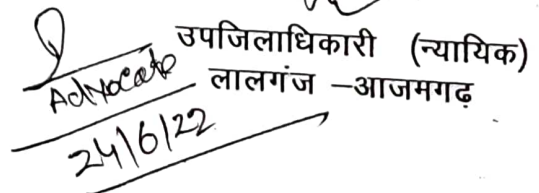 उपजिलाधिकारी (न्यायिक)
लालगंज -आजमगढ़
Advocate
24/6/22